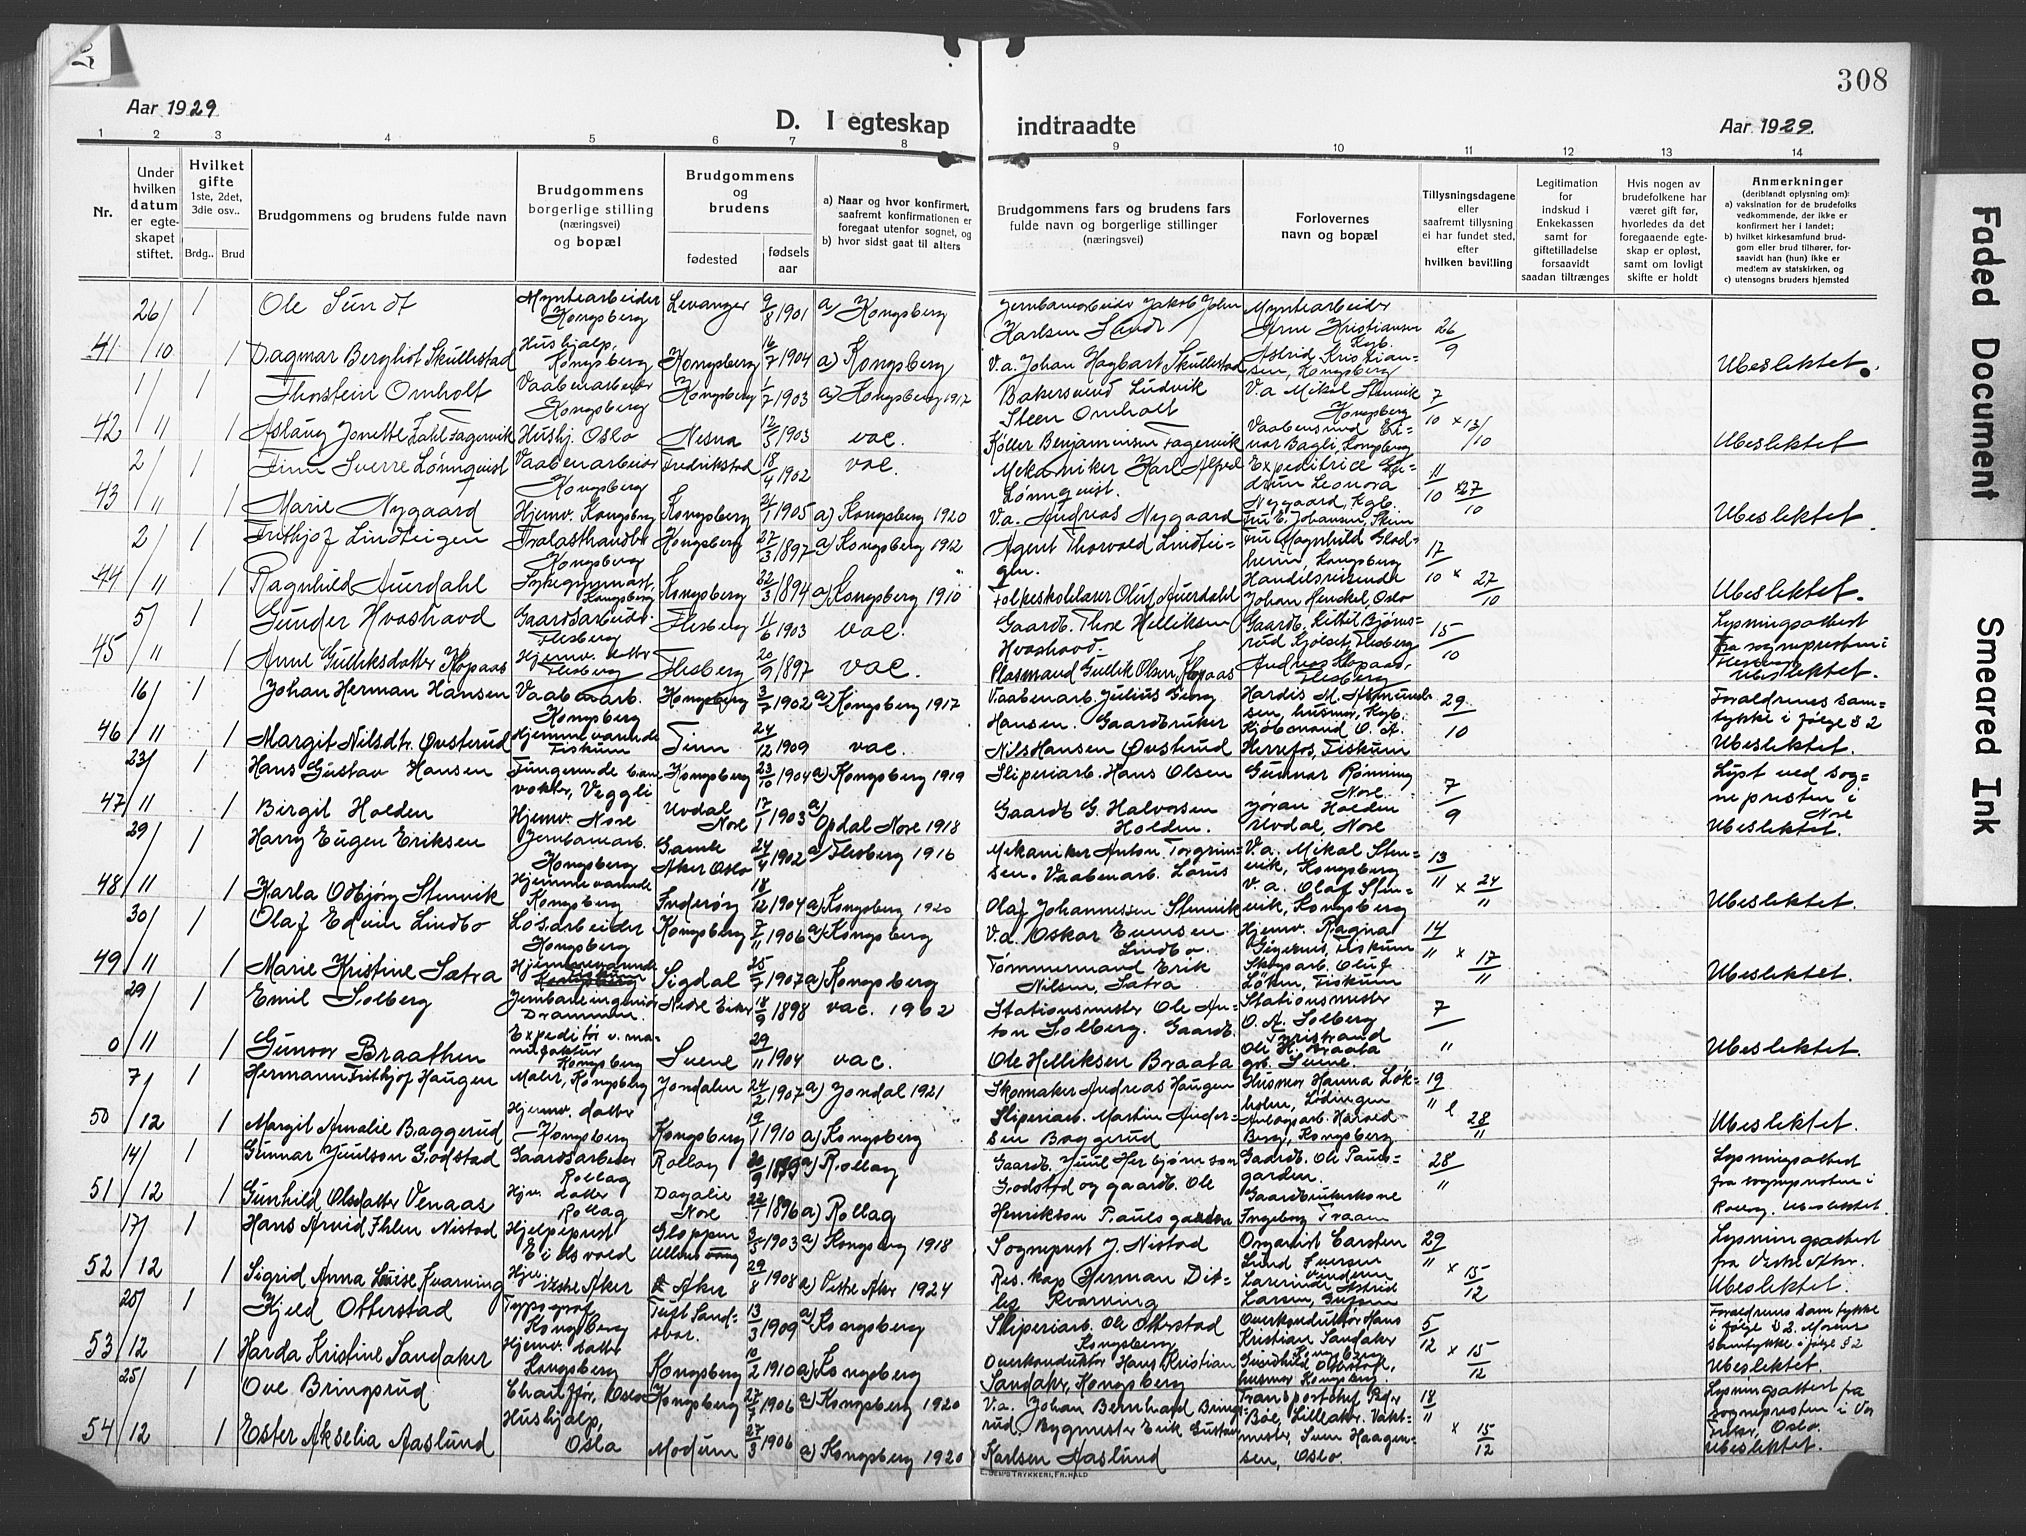 308
Aar 1929
D. I egteskap indtraadte
Aar 1929.
1 2 3 4 5 6 7 8 9 10 11 12 13 14
Nr.
Under hvilken datum er egteskapet stiftet.
Hvilket gifte
1ste, 2det, 3die osv..
Brdg.. Brud
Brudgommens og brudens fulde navn
Brudgommens borgerlige stilling (næringsvei) og bopæl
Brudgommens og brudens
fødested
fødselsaar
a) Naar og hvor konfirmert, saafremt konfirmationen er foregaat utenfor sognet, og
b) hvor sidst gaat til alters
Brudgommens fars og brudens fars fulde navn og borgerlige stillinger (næringsvei)
Forlovernes navn og bopæl
Tillysningsdagene eller saafremt tillysning ei har fundet sted, efter hvilken bevilling
Legitimation for indskud i Enkekassen samt for giftetilladelse forsaavidt saadan tiltrænges
Hvis nogen av brudefolkene har været gift før, hvorledes da det foregaaende egteskap er opløst, samt om lovligt skifte er holdt
Anmerkninger
(deriblandt oplysning om):
a) vaksination for de brudefolks vedkommende, der ikke er konfirmert her i landet;
b) hvilket kirkesamfund brudgom eller brud tilhører, forsaavidt han (hun) ikke er medlem av statskirken, og
c) utensogns bruders hjemsted
26/ 1 Ole Sundt Myntearbeider Kongsberg Levanger 9/8 1901 a) Kongsberg Jernbanearbeider Jakob Johan Karlsen Sundt Myntearbeider Arne Kristiansen Kgb. 26/9
41 /10 1 Dagmar Bergliot Skullestad Hushjelp, Kongsberg Kongsberg 16/7 1904 a) Kongsberg V.a. Johan Hagbart Skullestad Astrid Kristiansen, Kongsberg Ubeslektet.
1/ 1 Thorstein Omholt Vaabenarbeider Kongsberg Kongsberg 1/7 1903 a) Kongsberg 1917 Bakersvend Ludvik Steen Omholt V.a. Mikal Stenvik Kongsberg 7/10 x 13/10
42 /11 1 Aslaug Jonette Dahl Fagervik Hushj. Oslo Nesna 12/5 1903 vac. Køller Benjaminsen Fagervik Vaabensmed Einar Bagli, Kongsberg Ubeslektet
2/ 1 Finn Sverre Lønnquist Vaabenarbeider Kongsberg Fredrikstad 18/4 1902 vac. Mekaniker Karl Alfred Lønnquist. Expeditrice Gudrun Leonora Nygaard, Kgb. 11/10 x 27/10
43 /11 1 Marie Nygaard Hjemv. Kongsberg Kongsberg 21/1 1905 a) Kongsberg 1920 V.a. Andreas Nygaard Fru E. Johansen, Skien Ubeslektet.
2/ 1 Frithjof Lindteigen Trælasthandler Kongsberg Kongsberg 27/3 1897 a) Kongsberg 1912 Agent Thorvald Lindteigen. Fru Magnhild Gladheim, Kongsberg 17/10 x 27/10
44 /11 1 Ragnhild Auerdahl Sykegymnast, Kongsberg Kongsberg 22/3 1894 a) Kongsberg 1910 Folkeskolelærer Oluf Auerdahl Handelsreisende Johan Henckel, Oslo Ubeslektet.
5/ 1 Gunder Hvashovd Gaardsarbeider. Flesberg Flesberg 11/6 1903 vac. Gaardb. Thore Helliksen Hvashovd. Gaardb. Kittil Bjørnsrud Kjølset, Flesberg 15/10 Lysningsattest fra sognepresten i Flesberg
45 /11 1 Anne Gulliksdatter Hopaas Hjemv. datter Flesberg Flesberg 20/9 1897 vac. Plasmand Gullik Olsen Hopaas Andreas Hopaas, Flesberg Ubeslektet.
16/ 1 Johan Herman Hansen Vaabenarb. Kongsberg Kongsberg 3/7 1902 a) Kongsberg 1917 Vaabenarb. Julius Georg Hansen. Gaardbruker Hardis M. Asmundsen, husmor, Kgb. 29/10 Foreldrenes samtykke i følge § 2
46 /11 1 Margit Nilsdtr. Øvsterud Hjemmeværende Fiskum Tinn 24/12 1909 vac. Nils Hansen Øvsterud Kjøbmand O. A. Herrefos, Fiskum Ubeslektet.
23/ 1 Hans Gustav Hansen Fungerende banevokter, Veggli Kongsberg 23/10 1904 a) Kongsberg 1919 Sliperiarb. Hans Olsen Gunnar Rønning Nore 7/9 Lyst ved sognepresten i Nore
47 /11 1 Birgit Holden Hjemv. Nore Uvdal Nore 17/1 1903 a) Opdal Nore 1918 Gaardb G. Halvorsen Holden. Jøran Holden Uvdal, Nore Ubeslektet.
29/ 1 Harry Eugen Eriksen Jernbanearb. Kongsberg Gamle Aker Oslo 24/4 1902 a) Flesberg 1916 Mekaniker Anton Torgrimsen. Vaabenarb. Lorus V.a. Mikal Stenvik, Kongsberg 13/11 x 24/11
48 /11 1 Karla Odbjørg Stenvik Hjemmeværende Kongsberg Inderøy 18/12 1904 a) Kongsberg 1920 Olaf Johannessen Stenvik V.a. Olaf Stenvik, Kongsberg Ubeslektet.
30/ 1 Olaf Edvin Lindbo Løsarbeider Kongsberg Kongsberg 7/11 1906 a) Kongsberg V.a. Oskar Evensen Lindbo. Hjemv. Ragna Fiskum 14/11 x 17/11
49 /11 1 Marie Kristine Satra Hjemmeværende Sigdal 25/7 1907 a) Kongsberg Tømmermand Erik Nilsen, Satra Skogsarb. Oluf Løken, Fiskum Ubeslektet.
29/ 1 Emil Solberg Jernbaneingeniør Drammen. Nedre Eiker 18/9 1898 vac. 1902 Stationsmester Ole Anton Solberg. Gaardb. Stationsmester O. A. Solberg Tyristrand 7/11
0 /11 1 Gunvor Braathen Expeditør v. manufaktur Kongsberg Svene 29/11 1904 vac. Ole Helliksen Braata Ole H. Braata gb. Svene. Ubeslektet.
7/ 1 Hermann Frithjof Haugen Maler, Kongsberg Jondalen 24/2 1907 a) Jondal 1921 Skomaker Andreas Haugen Husmor Hanna Løkholm, Lødingen 19/11 28/11
50 /12 1 Margit Amalie Baggerud Hjemv. datter Kongsberg Kongsberg 19/1 1910 a) Kongsberg Sliperiarb. Martin Andersen Baggerud Anlegsarb. Harald Berg, Kongsberg Ubeslektet.
14/ 1 Gunnar Juulson Godstad Gaardsarbeider Rollag Rollag 20/9 a) Rollag Gaardb. Juul Herbjørnson Godstad og gaardb. Ole Gaardb. Ole Paulsgarden. 28/11 Lysningsattest fra sognepresten i
51 /12 1 Gunhild Olsdatter Venaas Hjv. datter Rollag Dagalie Nore 22/1 1896 a) Rollag Henrikson Paulsgaarden Gaardbrukerkone Ingeborg Traaen Rollag. Ubeslektet.
17/ 1 Hans Arvid Ihlen Nistad Hjelpeprest Eidsvold Gloppen 3/5 1903 a) Kongsberg 1918 Sogneprest J. Nistad Organist Carsten Lund Iversen 29/11 x 15/12 Lysningsattest fra Vestre Aker.
52 /12 1 Sigrid Anna Louise Kvarving Hjv. Vestre Aker Aker 29/8 1908 a) Vestre Aker 1924 Res. kap Herman Ditlef Kvarving Lærerinde Astrid Larsen, Ubeslektet.
25/ 1 Kjeld Otterstad Typograf Kongsberg Tuft Sandsvær. 13/3 1909 a) Kongsberg Sliperiarb. Ole Otterstad Kongsberg Overkonduktør Hans Kristian Sandaker Kongsberg 5/12 x 15/12 Foreldrenes samtykke i følge § 2. Morens samtykke i følge § 2
53 /12 1 Harda Kristine Sandaker Hjemv. datter Kongsberg Kongsberg 10/2 1910 a) Kongsberg Overkonduktør Hans Kristian Sandaker, Kongsberg Otterstad, husmor Kongsberg. Ubeslektet.
25/ 1 Ove Bringsrud Chauffør, Oslo Kongsberg 27/7 1906 a) Kongsberg 1920 V.a. Johan Bernhard Bringsrud, Bygmester Erik Gustav Transportchef Peder Bøe, Lilleaker. Vaktmester, Sven Haagensen, Oslo. 18/11 x 15/12 Lysningsattest fra sognepresten i Oslo.
54 /12 1 Ester Akselia Aaslund Hushjelp, Oslo Modum 27/3 1906 a) Kongsberg 1920 Karlsen Aaslund Ubeslektet.
E. SEM'S TRYKKERI, FR.HALD
Faded Document
Smeared Ink